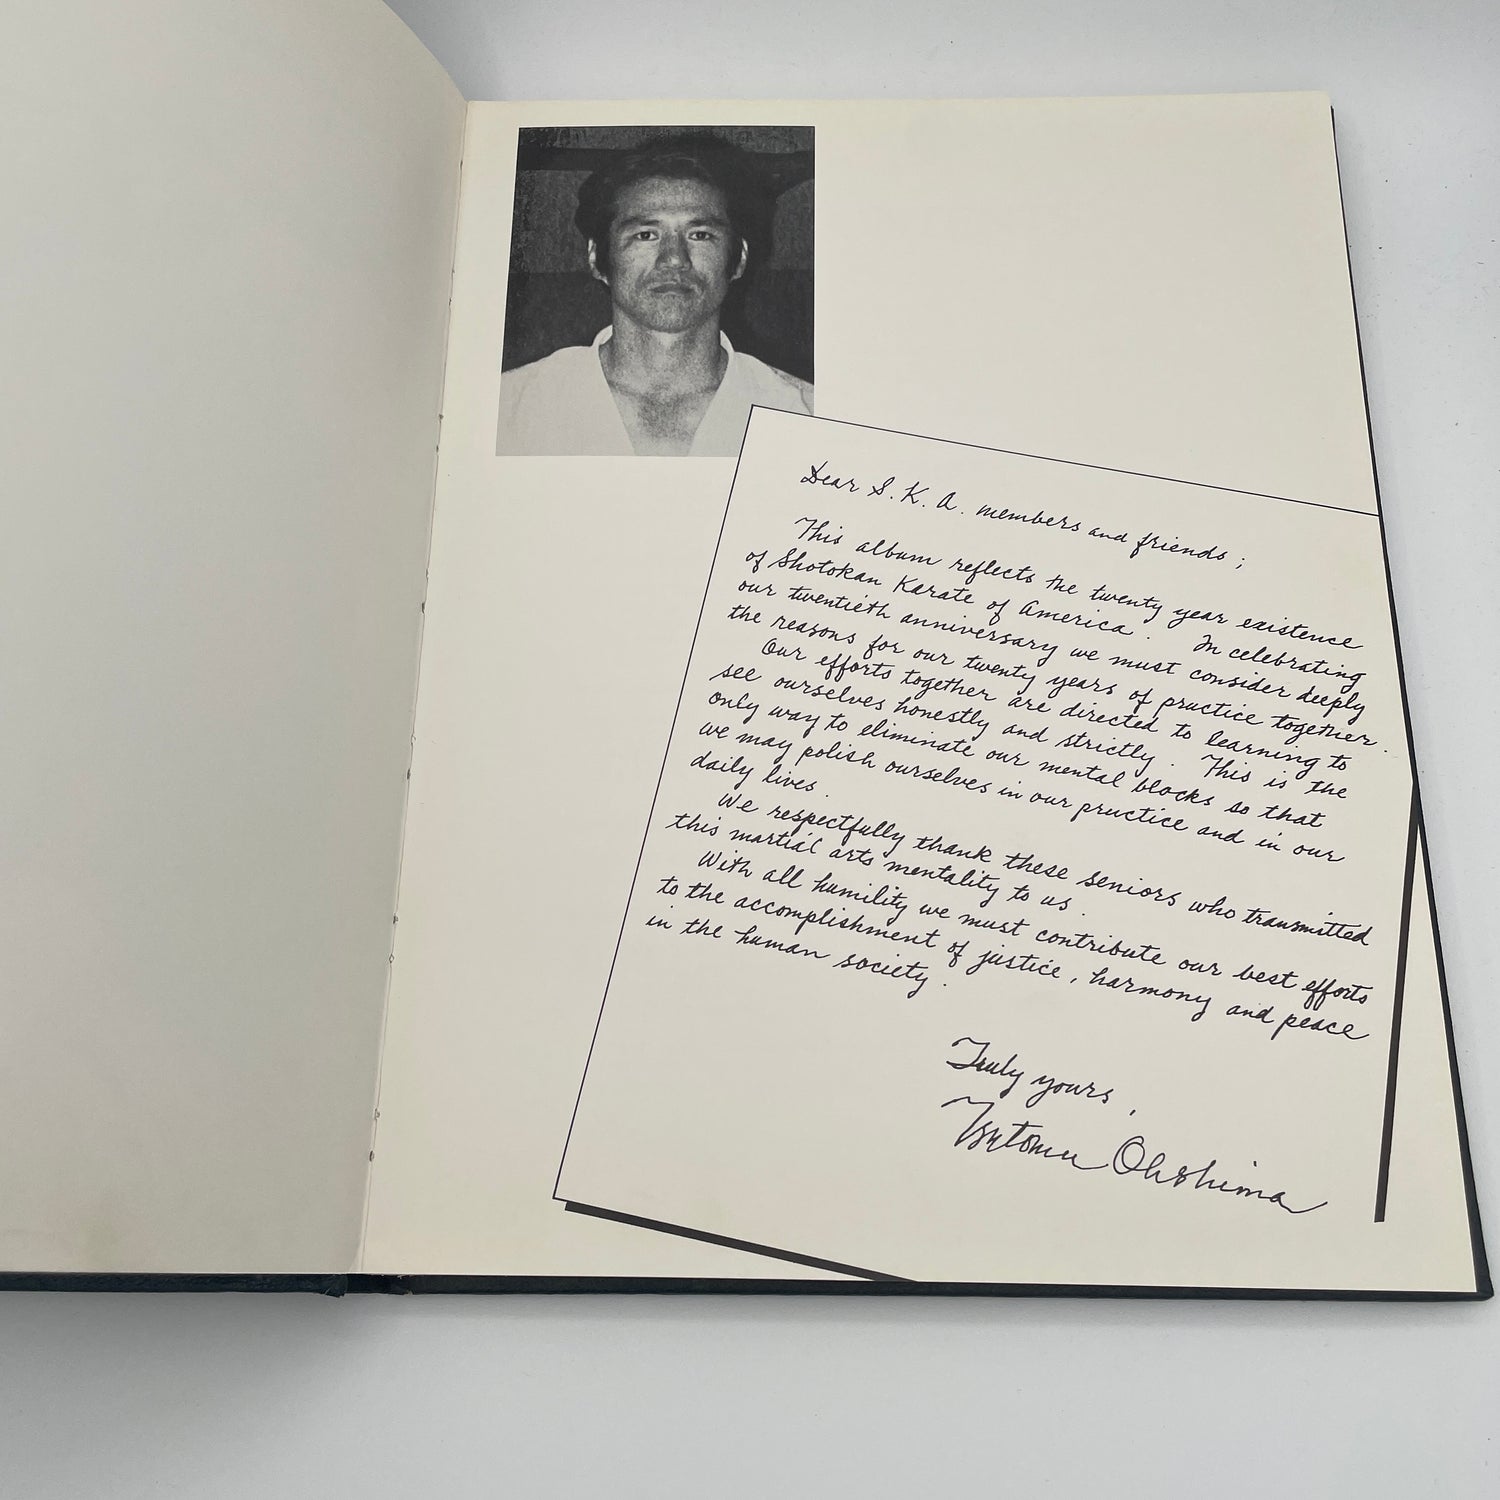 Dear S. K. A. members and friends ;
This album reflects the twenty year existence
of Shotokan Karate of America. In celebrating
our twentieth anniversary we must consider deeply
the reasons for our twenty years of practice together.
Our efforts together are directed to learning to
see ourselves honestly and strictly. This is the
only way to eliminate our mental blocks so that
we may polish ourselves in our practice and in our
daily lives.
We respectfully thank these seniors who transmitted
this martial arts mentality to us.
With all humility we must contribute our best efforts
to the accomplishment of justice, harmony and peace
in the human society.
Truly yours,
Tsutomu Ohshima